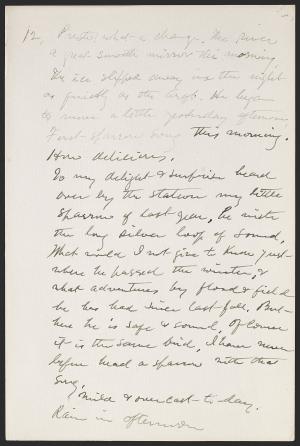 12, Presto, what a change. The river
a great smooth mirror this morning.
The ice slipped away in the night
as quietly as the He began
to move a little yesterday afternoon.
First sparrow song this morning.
How delicious.
To my delight & surprise heard
over by the station my little
sparrow of last year, he with
the long silver loop of sound.
What would I not give to know just
where he passed the winter, &
what adventures by flood & field
he has had since last fall. But
here he is safe & sound, of course
it is the same bird, I have never
before heard a sparrow with that
song,
Mild & overcast to day.
Rain in afternoon